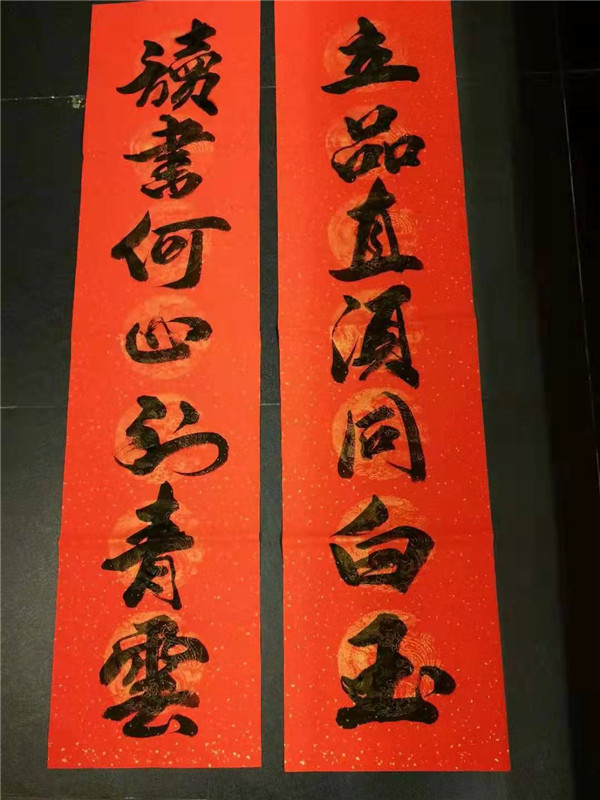 立品直須同白玉
讀書何必到青雲